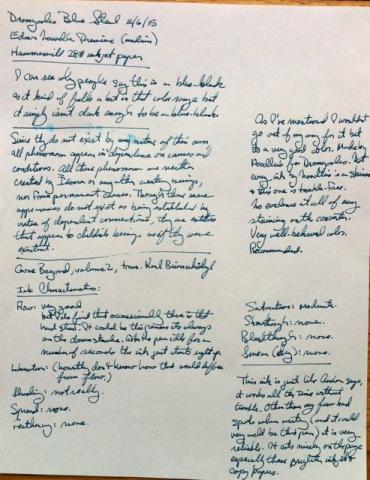 Dromgoole's Blue Steel 8/6/15
Edison Nouvelle Premiere (medium)
Hammermill 28# inkjet paper
I can see why people say this is a blue-black
as it kind of falls a bit in that color range but
it simply isn't dark enough to be a blue-black.
Since they do not exist by any nature of their own,
all phenomena appear in dependence on causes and
conditions. All these phenomena are neither
created by Isvara or any other creator beings,
nor from permanent causes. Though these mere
appearances do not exist as being established by
virtue of dependent connections, they are entities
that appear to childish beings as if they were
existent.
Gone Beyond, volume 2, trans. Karl Brunnhölzl
Ink Characteristics:
Flow: very good
but I do find that occasionally there is that
hard start. It could be the pen as it's always
on the downstroke. Let the pen idle for a
number of seconds the ink just starts right up.
(honestly, don't know how this would differ
from flow.)
Shading: not really.
Spread: none.
Feathering: none.
As I've mentioned I wouldn't
go out of my way for it but
its a very good color. Made by
for Dromgoole's. Not
every ink by is a
this one is trouble-free.
No evidence at all of any
staining on the converter.
Very well-behaved color.
Recommended.
Saturation: moderate.
Showthrough: none.
Bleedthrough: none.
Smear (dry): none.
This ink is just like says,
it works all the time without
trouble. Other than my few hard
spots when writing (and it could
very well be this pen) it is very
reliable. It sits nicely on the page
especially these brighter inkjet &
copy papers.